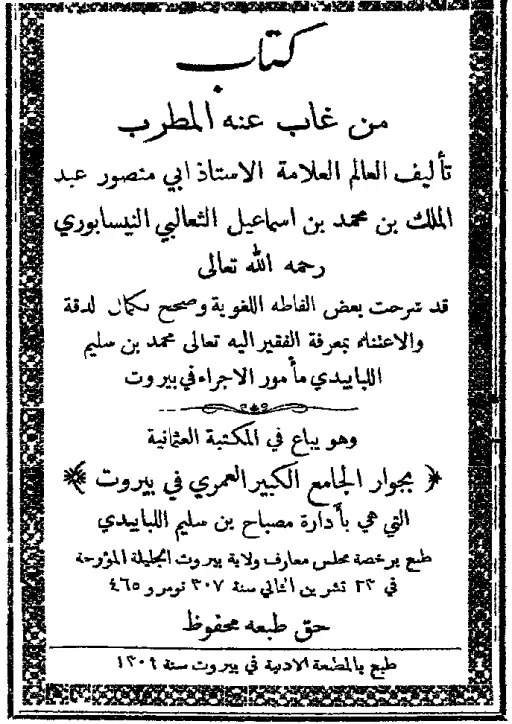 كتاب
من غاب عنه المطرب
تأليف العالم العلامة الاستاذ ابي منصور عبد
الملك بن محمد بن اسماعيل الثعالبي النيسابوري
رحمه الله تعالى
قد شرحت بعض الفاظه اللغوية وصحح بكمال الدقة
والاعتناء بمعرفة الفقير اليه تعالى محمد بن سليم
اللبابيدي مأمور الاجراء في بيروت
وهو يباع في المكتبة العثمانية
﴿ بجوار الجامع الكبير العمري في بيروت ﴾
التي هي بأدارة مصباح بن سليم اللبابيدي
طبع برخصة مجلس معارف ولاية بيروت الجليلة المؤرخة
في ٢٣ تشرين الثاني سنة ٣٠٧ نومرو ٤٦٥
حق طبعه محفوظ
طبع بالمطبعة الادبية في بيروت سنة ١٣٠٩